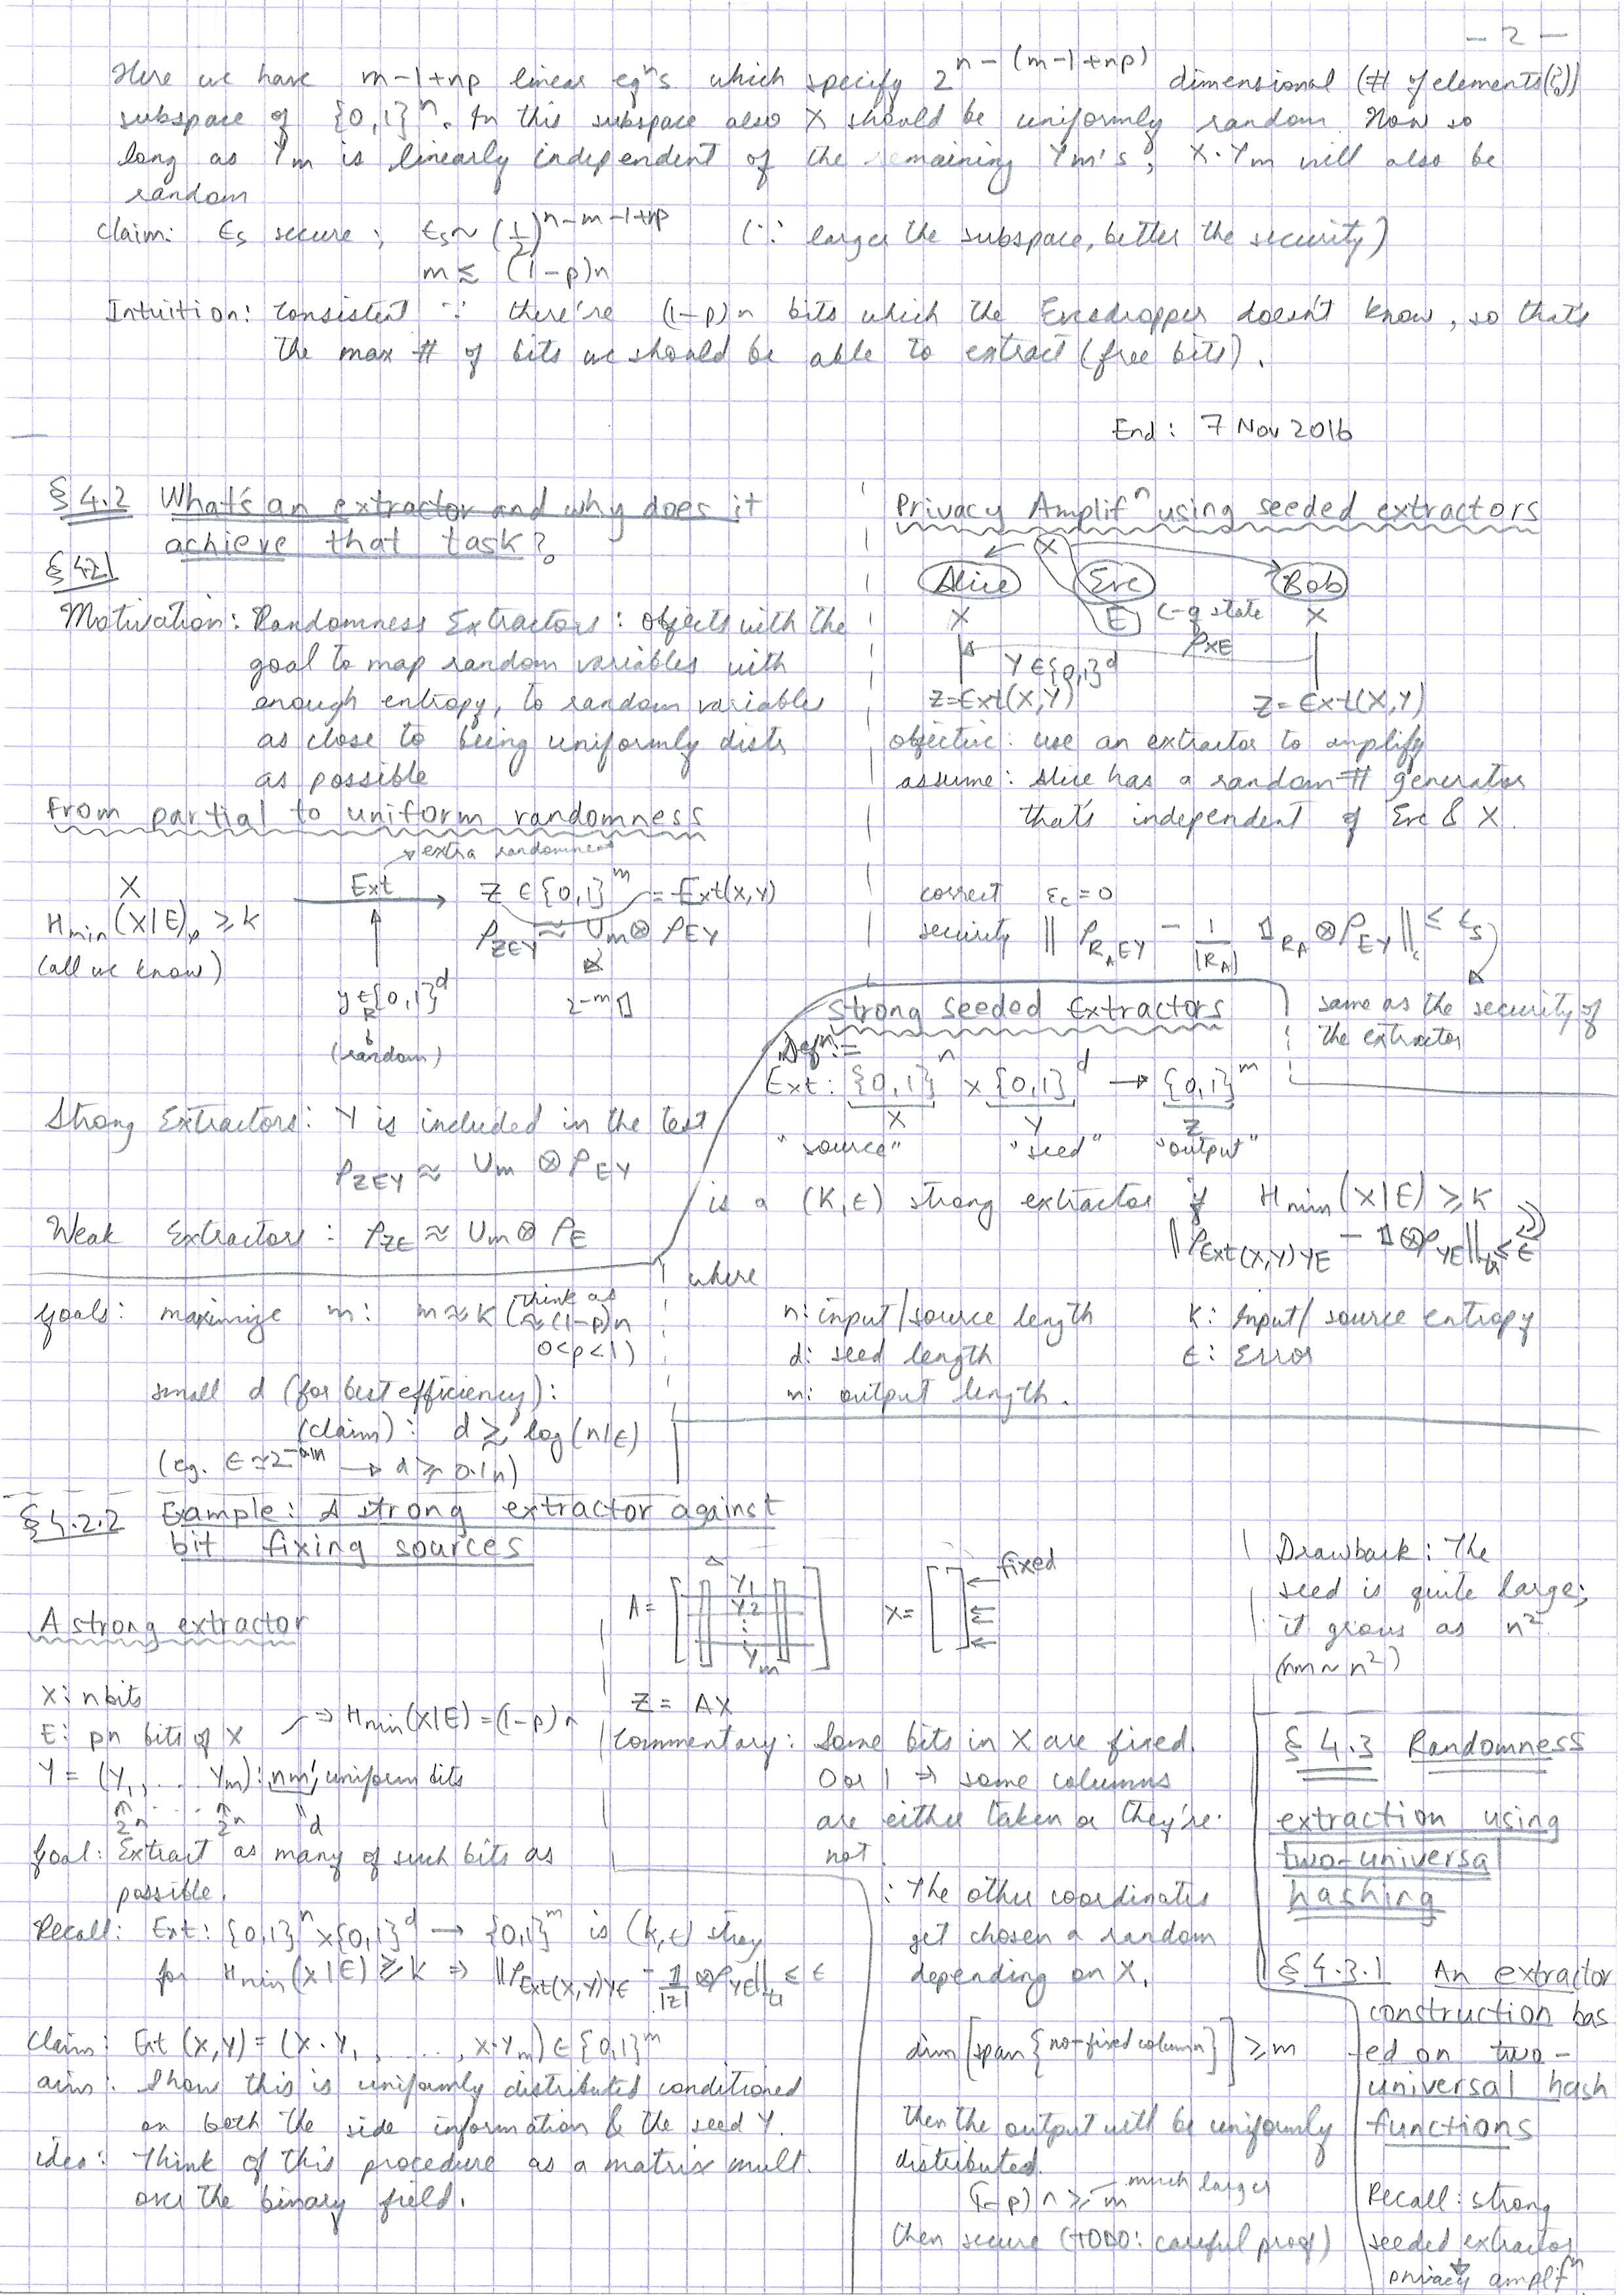 - 2 -
Here we have m-1+np linear eqⁿs which specify 2^{n-(m-1+np)} dimensional (# of elements(?))
subspace of {0,1}ⁿ. In this subspace also X should be uniformly random. Now so
long as Ym is linearly independent of the remaining Ym's, X·Ym will also be
random
claim: Es secure; Es ~ (1/2)^{n-m-1+np} (∵ larger the subspace, better the security)
m ≲ (1-p)n
Intuition: Consistent ∵ there're (1-p)n bits which the Evesdropper doesn't know, so that's
the max # of bits we should be able to extract (free bits).
End: 7 Nov 2016
§ 4.2 What's an extractor and why does it
achieve that task?
§ 4.2.1
Motivation: Randomness Extractors: objects with the
goal to map random variables with
enough entropy, to random variables
as close to being uniformly distr
as possible
From partial to uniform randomness
→ extra randomness
X Ext Z ∈ {0,1}^m = Ext(X,Y)
Hmin(X|E)ρ ≥ k ρ_ZEY ≈ Um ⊗ ρ_EY
(all we know)
y ∈_R {0,1}^d 2^{-m} 𝟙
(random)
Strong Extractors: Y is included in the test
ρ_ZEY ≈ Um ⊗ ρ_EY
Weak Extractors: ρ_ZE ≈ Um ⊗ ρ_E
goals: maximize m: m ≈ k (think as
≈ (1-p)n
0<p<1)
small d (for best efficiency):
(claim): d ≳ log(n/ε)
(eg. ε ≃ 2^{-0.1n} → d ≳ 0.1n)
Privacy Amplifⁿ using seeded extractors
X
Alice Eve Bob
X E c-q state X
ρ_XE
Y ∈ {0,1}^d
Z=Ext(X,Y) Z=Ext(X,Y)
objective: use an extractor to amplify
assume: Alice has a random # generator
that's independent of Eve & X.
correct ε_c = 0
security || ρ_{R_A EY} - 1/|R_A| 𝟙_{R_A} ⊗ ρ_EY || ≤ ε_s
same as the security of
the extractor
Strong Seeded Extractors
Defⁿ:=
Ext: {0,1}ⁿ x {0,1}^d → {0,1}^m
X Y Z
"source" "seed" "output"
is a (K,ε) strong extractor if Hmin(X|E) ≥ K
|| ρ_{Ext(X,Y)YE} - 𝟙 ⊗ ρ_YE ||_tr ≤ ε
where
n: input/source length k: Input/source entropy
d: seed length ε: Error
m: output length.
§ 4.2.2 Example: A strong extractor against
bit fixing sources
A strong extractor
X: n bits
E: pn bits of X → ⇒ Hmin(X|E) = (1-p)n
Y = (Y₁, ... Ym): nm, uniform bits
2ⁿ ... 2ⁿ "d
Goal: Extract as many of such bits as
possible.
Recall: Ext: {0,1}ⁿ x {0,1}^d → {0,1}^m is (k,ε) strong
for Hmin(X|E) ≥ k ⇒ || ρ_{Ext(X,Y)YE} - 𝟙/|Z| ⊗ ρ_YE ||_tr ≤ ε
Claim: Ext(X,Y) = (X·Y₁, ..., X·Ym) ∈ {0,1}^m
aim: Show this is uniformly distributed conditioned
on both the side information & the seed Y.
idea: Think of this procedure as a matrix mult.
over the binary field.
A = [ Y₁ Y₂ ⋮ Ym ] X = [ ] fixed
Z = AX
Commentary: Some bits in X are fixed.
0 or 1 ⇒ some columns
are either taken or they're
not.
: The other coordinates
get chosen a random
depending on X.
dim[span{no-fixed column}] ≥ m
then the output will be uniformly
distributed.
(1-p)n ≥ m much larger
then secure (TODO: careful proof)
Drawback: The
seed is quite large;
it grows as n²
(nm ~ n²)
§ 4.3 Randomness
extraction using
two-universal
hashing
§ 4.3.1 An extractor
construction bas
ed on two-
universal hash
functions
Recall: strong
seeded extractor
privacy amplfⁿ